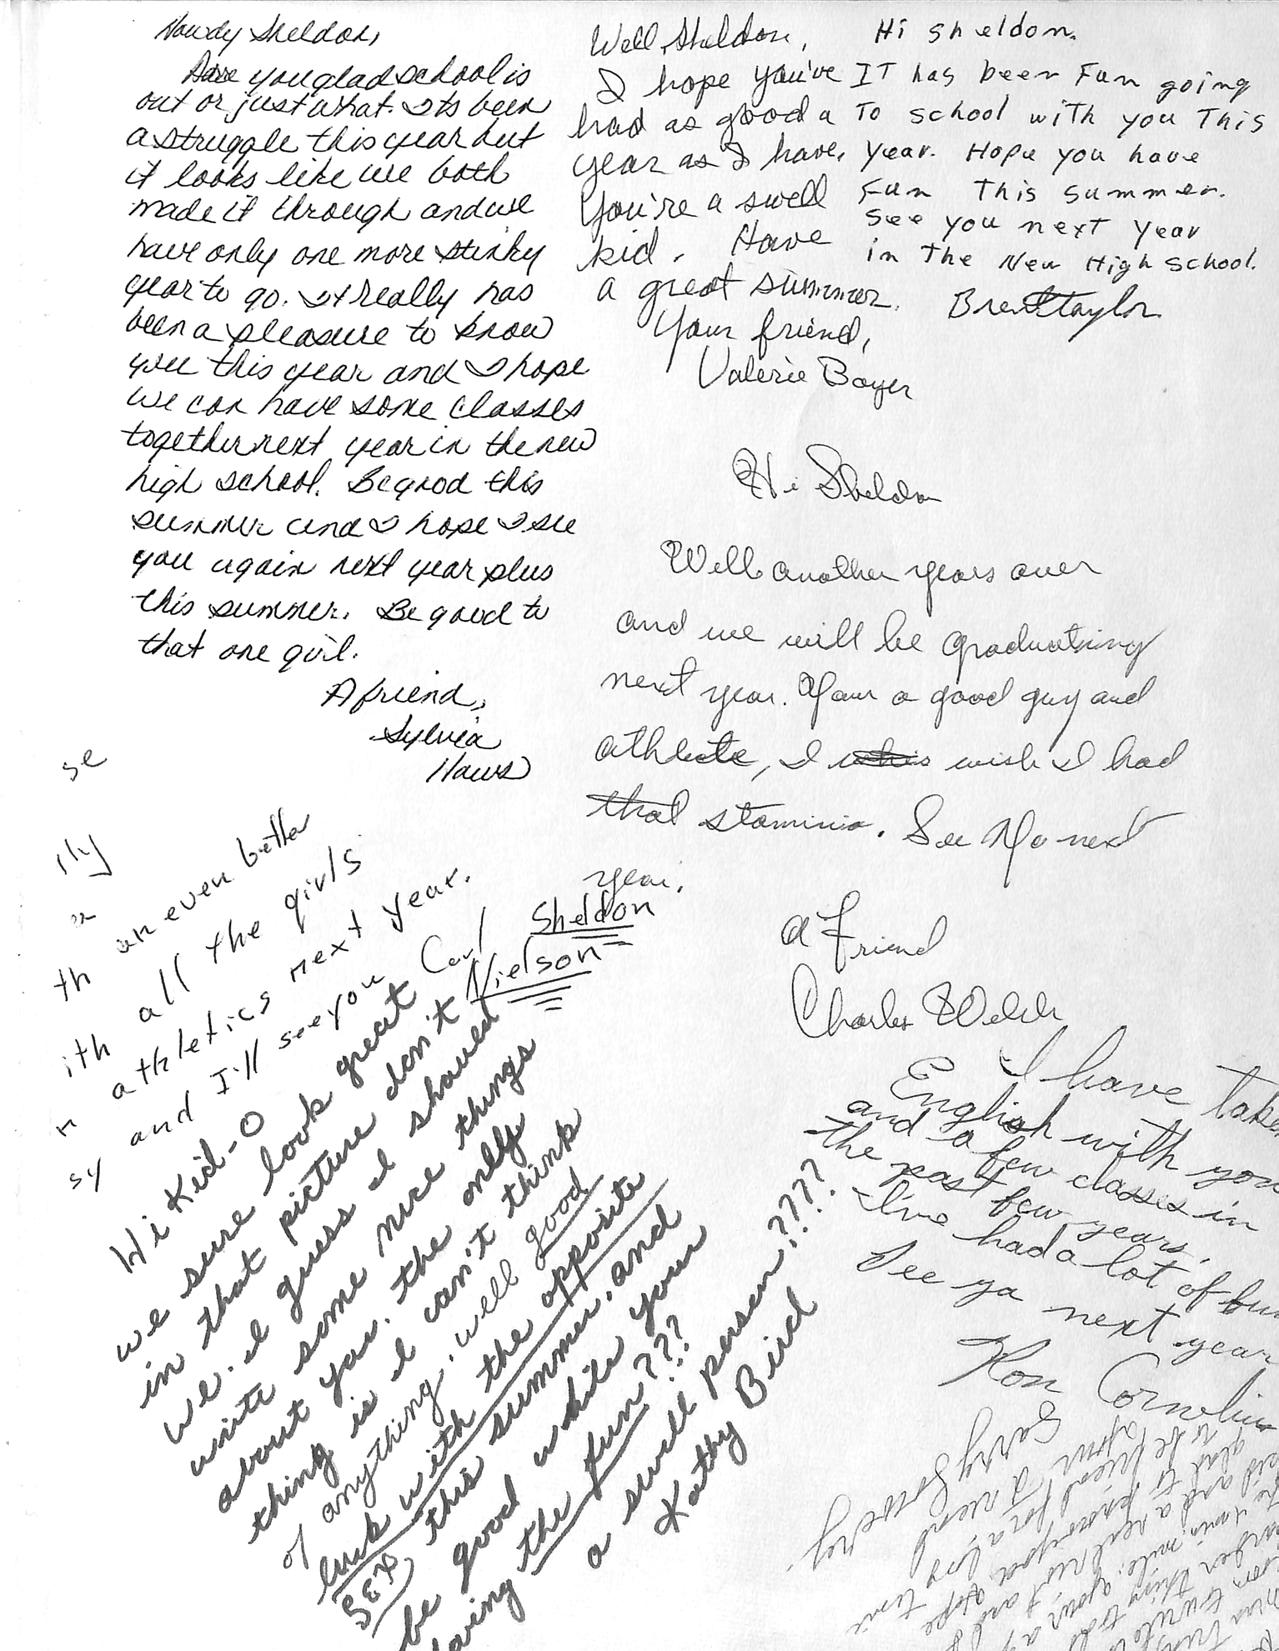 Howdy Sheldon,
Are you glad school is
out or just what. Its been
a struggle this year but
it looks like we both
made it through and we
have only one more stinky
year to go. It really has
been a pleasure to know
you this year and I hope
we can have some classes
together next year in the new
high school. Be good this
summer and I hope I see
you again next year plus
this summer. Be good to
that one girl.
A friend,
Sylvia
Haws
Well Sheldon,
I hope you've
had as good a
year as I have.
You're a swell
kid. Have
a great summer.
Your friend,
Valerie Boyer
Hi Sheldon.
IT has been Fun going
To school with you This
year. Hope you have
Fun This summer.
See you next year
in The New High School.
Brent Taylor
Hi Sheldon
Well another years over
and we will be graduating
next year. Your a good guy and
athlete, I wish I had
that stamina. See Ya next
year.
A Friend
Charles Welch
se
th an even better
ith all the girls
n athletics next year.
sy and I'll see you
Carl
Sheldon
Nielson
Hi Kid-O
we sure look great
in that picture don't
we. I guess I should
write some nice things
about you, the only
thing is I can't think
of anything, well good
luck with the opposite
SEX, this summer, and
be good while your
having the fun???
a swell person????
Kathy Bird
I have taken
English with you
and a few classes in
the past few years.
I've had a lot of fun
See ya next year
Ron Cornelius
Gary Lowery